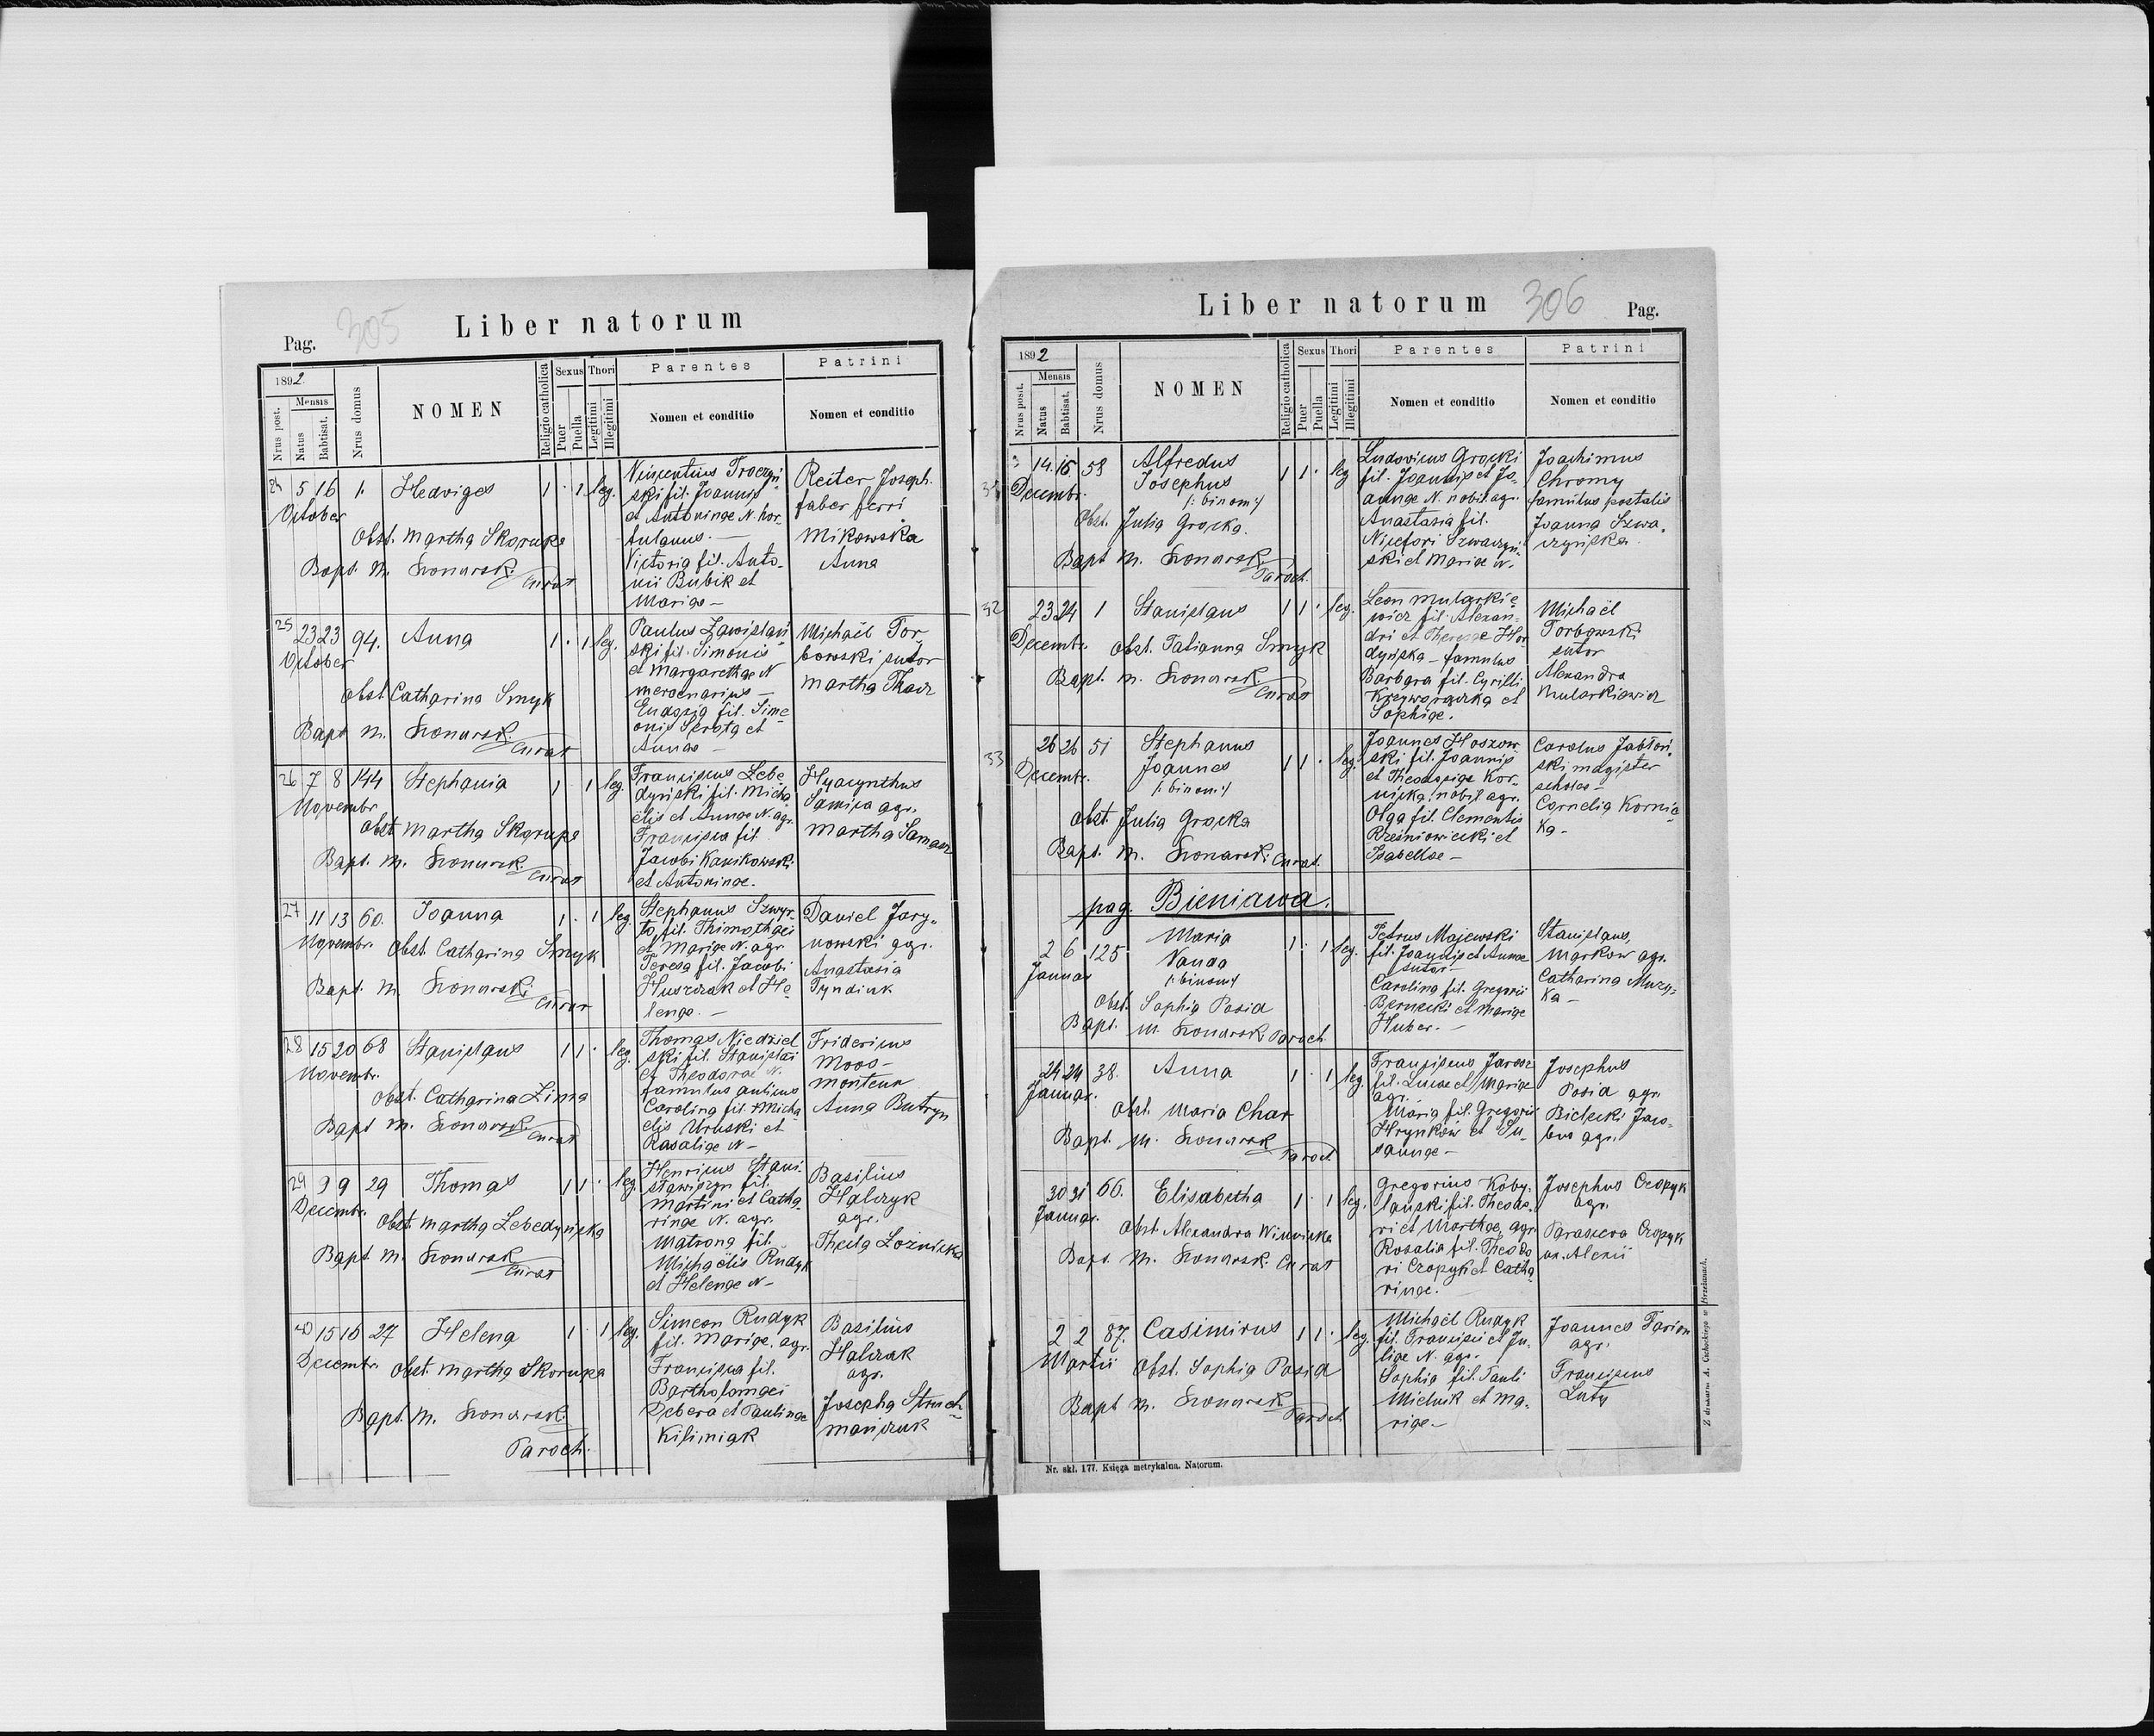 305
Liber natorum
Pag.
1892
Nrus post.
Mensis
Natus
Babtisat.
Nrus domus
NOMEN
Religio catholica
Sexus
Puer
Puella
Thori
Legitimi
Illegitimi
Parentes
Nomen et conditio
Patrini
Nomen et conditio
24 5 16 1. Hedviges 1 · 1 leg.
October
Obst. Martha Skorupa
Bapt. M. Konarski Curat
ski fil. Joannis
et Antoninae N. hor-
tulanus. —
Victoria fil. Anto-
nii Bubik et
Mariae —
Reiter Joseph.
faber ferri
Mikowska
Anna
25 23 23 94. Anna 1 · 1 leg.
October
Obst. Catharina Smyk
Bapt. M. Konarski Curat
Paulus Zawislań
ski fil. Simonis
et Margarethae N
mercenarius —
Eudoxia fil. Sime
onis Serota et
Annae —
Michaël Tor-
bowski sutor
Martha Tkacz
26 7 8 144 Stephania 1 · 1 leg.
Novembr.
Obst. Martha Skorupa
Bapt. M. Konarski Curat
Franciscus Lebe
dyński fil. Micha
ëlis et Annae N. agr.
Francisca fil.
Jacobi Kanikowski
et Antoninae.
Hyacynthus
Samica agr.
Martha
27 11 13 60. Joanna 1 · 1 leg.
Novembr.
Obst. Catharina Smyk
Bapt. M. Konarski Curat
Stephanus Szwyr-
to, fil. Thimothaei
et Mariae N. agr.
Teresa fil. Jacobi
Huszczak et He
lenae. —
Daniel Jary-
nowski agr.
Anastasia
Tyndiuk
28 15 20 68 Stanislaus 1 1 · leg.
Novembr.
Obst. Catharina Zima
Bapt. M. Konarski Curat
Thomas Niedziel
ski fil. Stanislai
et Theodorae N.
famulus
Carolina fil. Micha
elis Uruski et
Rosaliae N —
Fridericus
Moos —
monteur
Anna Butryn
29 9 9 29 Thomas 1 1 · leg.
Decembr.
Obst. Martha Lebedyńska
Bapt. M. Konarski Curat
Henricus Stani-
sławiszyn fil.
Martini et Catha-
rinae N. agr.
Matrona fil.
Michaëlis Rudyk
et Helenae N —
Basilius
Halczyk
agr.
Thecla Łoźnicka
15 16 27 Helena 1 · 1 leg.
Decembr.
Obst. Martha Skorupa
Bapt. M. Konarski
Paroch.
Simeon Rudyk
fil. Mariae, agr.
Francisca fil.
Bartholomaei
Debera et Paulinae
Kisimiak
Basilius
Halczak
agr.
Josepha
Liber natorum
306
Pag.
1892
Nrus post.
Mensis
Natus
Babtisat.
Nrus domus
NOMEN
Religio catholica
Sexus
Puer
Puella
Thori
Legitimi
Illegitimi
Parentes
Nomen et conditio
Patrini
Nomen et conditio
14. 16 58 Alfredus 1 1 · leg
Decembr. Josephus
/: binom :/
Obst. Julia Grocka.
Bapt. M. Konarski
Paroch.
Ludovicus Grocki
fil. Joannis et Jo-
annae N. nobil. agr.
Anastasia fil.
Nicefori Szwaczyń-
ski et Mariae N.
Joachimus
Chromy
famulus postalis
Joanna Szwa-
czyńska.
32 23 24 1 Stanislaus 1 1 · leg.
Decembr. Obst. Tatianna Smyk
Bapt. M. Konarski Curat
Leon Mularkie
wicz fil. Alexan-
dri et Theresae Hor
dyńska — famulus
Barbara fil. Cyrilli
et
Sophiae.
Michaël
Torbowski
sutor
Alexandra
Mularkiewicz
33 26 26 51 Stephanus 1 1 · leg.
Decembr. Joannes
/: binom :/
Obst. Julia Grocka
Bapt. M. Konarski Curat.
Joannes Hoszow
ski fil. Joannis
et Theodosiae Kor-
nicka, nobil agr.
Olga fil. Clementis
Rześniowiecki et
Isabellae —
Carolus Jabłoń-
ski magister
scholae —
Cornelia Kornic
ka —
pag. Bieniawa.
2 6 125 Maria 1 · 1 leg.
Januar Vanda
/: binom :/
Obst. Sophia Posia
Bapt. M. Konarski Paroch
Petrus Majewski
fil. Joannis et Annae
sutor —
Carolina fil. Gregorii
Bernecki et Mariae
Huber. —
Stanislaus,
Markow agr.
Catharina Muzy-
ka —
24 24 38. Anna 1 · 1 leg.
Januar.
Obst. Maria Char
Bapt. M. Konarski
Paroch
Franciscus Jarosz
fil. Lucae et Mariae
agr.
Maria fil. Gregorii
Hrynków et Su-
sannae —
Josephus
Posia agr.
Bielecki Jaco-
bus agr.
30 31 66. Elisabetha 1 · 1 leg.
Januar.
Obst. Alexandra Winnicka
Bapt. M. Konarski Curat
Gregorius Koby-
lański fil. Theodo-
ri et Marthae, agr.
Rosalia fil. Theodo
ri Czopyk et Catha
rinae.
Josephus Czopyk
agr.
Parasceva Czopyk
ux. Alexii
2 2 87. Casimirus 1 1 · leg.
Martii Obst. Sophia Posia
Bapt. M. Konarski
Paroch
Michaël Rudyk
fil. Francisci et Ju-
liae N. agr.
Sophia fil. Pauli
Mielnik et Ma-
riae. —
Joannes Farion
agr.
Franciscus
Luty
Nr. skł. 177. Księga metrykalna. Natorum.